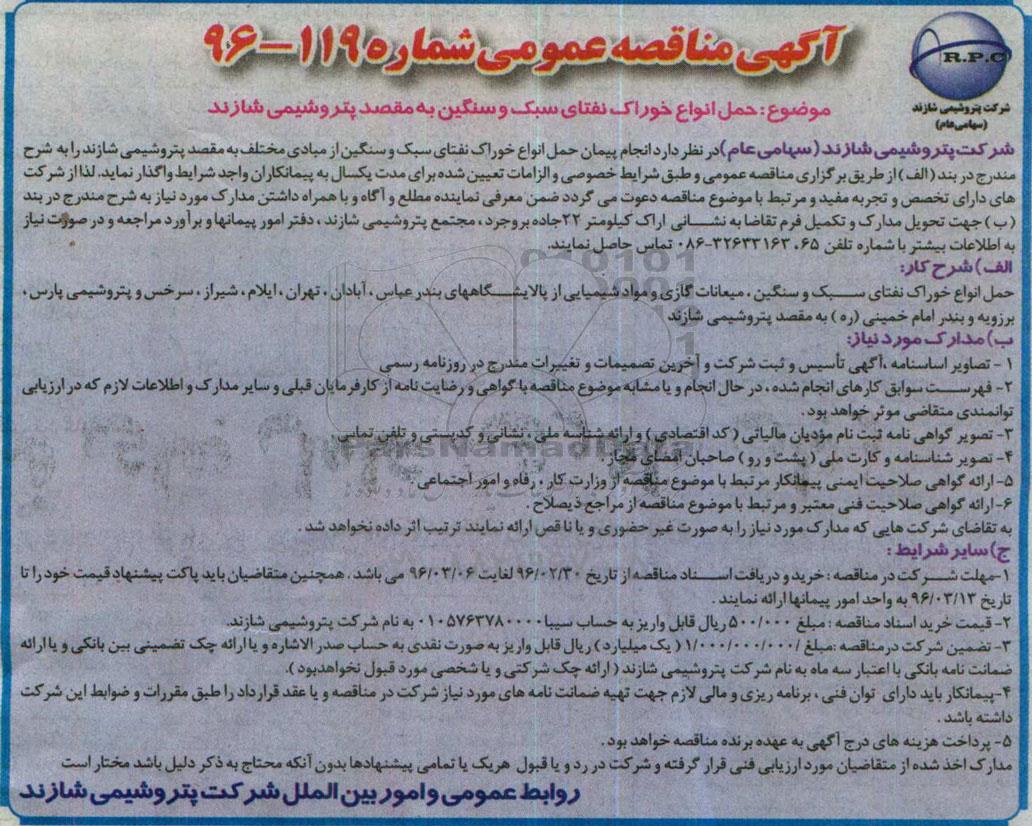 R.P.C
شرکت پتروشیمی شازند
(سهامی عام)
آگهی مناقصه عمومی شماره ۱۱۹-۹۶
موضوع: حمل انواع خوراک نفتای سبک و سنگین به مقصد پتروشیمی شازند
شرکت پتروشیمی شازند (سهامی عام) در نظر دارد انجام پیمان حمل انواع خوراک نفتای سبک و سنگین از مبادی مختلف به مقصد پتروشیمی شازند را به شرح
مندرج در بند (الف) از طریق برگزاری مناقصه عمومی و طبق شرایط خصوصی و الزامات تعیین شده برای مدت یکسال به پیمانکاران واجد شرایط واگذار نماید. لذا از شرکت
های دارای تخصص و تجربه مفید و مرتبط با موضوع مناقصه دعوت می گردد ضمن معرفی نماینده مطلع و آگاه و با همراه داشتن مدارک مورد نیاز به شرح مندرج در بند
(ب) جهت تحویل مدارک و تکمیل فرم تقاضا به نشانی اراک کیلومتر ۲۲ جاده بروجرد ، مجتمع پتروشیمی شازند ، دفتر امور پیمانها و برآورد مراجعه و در صورت نیاز
به اطلاعات بیشتر با شماره تلفن ۶۵ ، ۳۲۶۳۳۱۶۳-۰۸۶ تماس حاصل نمایند.
الف) شرح کار:
حمل انواع خوراک نفتای سبک و سنگین ، میعانات گازی و مواد شیمیایی از پالایشگاههای بندر عباس ، آبادان ، تهران ، ایلام ، شیراز ، سرخس و پتروشیمی پارس ،
برزویه و بندر امام خمینی (ره) به مقصد پتروشیمی شازند
ب) مدارک مورد نیاز:
۱ - تصاویر اساسنامه ، آگهی تأسیس و ثبت شرکت و آخرین تصمیمات و تغییرات مندرج در روزنامه رسمی
۲ - فهرست سوابق کارهای انجام شده ، در حال انجام و یا مشابه موضوع مناقصه با گواهی و رضایت نامه از کارفرمایان قبلی و سایر مدارک و اطلاعات لازم که در ارزیابی
توانمندی متقاضی موثر خواهد بود .
۳- تصویر گواهی نامه ثبت نام مؤدیان مالیاتی ( کد اقتصادی ) و ارائه شناسه ملی ، نشانی و کدپستی و تلفن تماس
۴- تصویر شناسنامه و کارت ملی ( پشت و رو ) صاحبان امضای مجاز.
۵- ارائه گواهی صلاحیت ایمنی پیمانکار مرتبط با موضوع مناقصه از وزارت کار ، رفاه و امور اجتماعی .
۶- ارائه گواهی صلاحیت فنی معتبر و مرتبط با موضوع مناقصه از مراجع ذیصلاح .
به تقاضای شرکت هایی که مدارک مورد نیاز را به صورت غیر حضوری و یا ناقص ارائه نمایند ترتیب اثر داده نخواهد شد .
ج) سایر شرایط :
۱-مهلت شرکت در مناقصه : خرید و دریافت اسناد مناقصه از تاریخ ۹۶/۰۲/۳۰ لغایت ۹۶/۰۳/۰۶ می باشد . همچنین متقاضیان باید پاکت پیشنهاد قیمت خود را تا
تاریخ ۹۶/۰۳/۱۳ به واحد امور پیمانها ارائه نمایند .
۲- قیمت خرید اسناد مناقصه : مبلغ ۵۰۰/۰۰۰ ریال قابل واریز به حساب سیبا ۰۱۰۵۷۶۳۷۸۰۰۰۰ به نام شرکت پتروشیمی شازند.
۳- تضمین شرکت در مناقصه :مبلغ ۱/۰۰۰/۰۰۰/۰۰۰/ ( یک میلیارد ) ریال قابل واریز به صورت نقدی به حساب صدر الاشاره و یا ارائه چک تضمینی بین بانکی و یا ارائه
ضمانت نامه بانکی با اعتبار سه ماه به نام شرکت پتروشیمی شازند ( ارائه چک شرکتی و یا شخصی مورد قبول نخواهدبود ).
۴-پیمانکار باید دارای توان فنی ، برنامه ریزی و مالی لازم جهت تهیه ضمانت نامه های مورد نیاز شرکت در مناقصه و یا عقد قرارداد را طبق مقررات و ضوابط این شرکت
داشته باشد .
۵- پرداخت هزینه های درج آگهی به عهده برنده مناقصه خواهد بود .
مدارک اخذ شده از متقاضیان مورد ارزیابی فنی قرار گرفته و شرکت در رد و یا قبول هریک یا تمامی پیشنهادها بدون آنکه محتاج به ذکر دلیل باشد مختار است
روابط عمومی و امور بین الملل شرکت پتروشیمی شازند